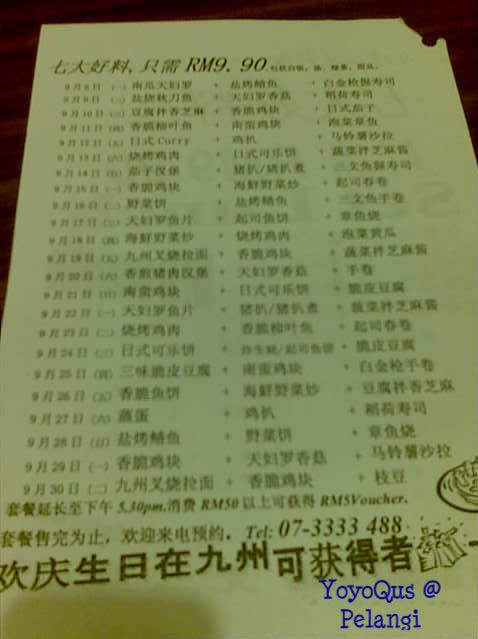 七大好料,只需 RM9.90
9月8日 (一) 南瓜天妇罗 + 盐烤鲭鱼 + 白金枪握寿司
9月9日 (二) 盐烧秋刀鱼 + 天妇罗香菇 + 稻荷寿司
9月10日 (三) 豆腐拌香芝麻 + 香脆鸡块 + 日式茄子
9月11日 (四) 香脆柳叶鱼 + 南蛮鸡块 + 泡菜章鱼
9月12日 (五) 日式 Curry + 鸡扒 + 马铃薯沙拉
9月13日 (六) 烧烤鸡肉 + 日式可乐饼 + 蔬菜拌芝麻酱
9月14日 (日) 茄子汉堡 + 猪扒/猪扒煮 + 三文鱼握寿司
9月15日 (一) 香脆鸡块 + 海鲜野菜炒 + 起司春卷
9月16日 (二) 野菜饼 + 盐烤鲭鱼 + 三文鱼手卷
9月17日 (三) 天妇罗鱼片 + 起司鱼饼 + 章鱼烧
9月18日 (四) 海鲜野菜炒 + 烧烤鸡肉 + 泡菜黄瓜
9月19日 (五) 九州叉烧拉面 + 香脆鸡块 + 蔬菜拌芝麻酱
9月20日 (六) 香煎猪肉汉堡 + 天妇罗香菇 + 手卷
9月21日 (日) 南蛮鸡块 + 日式可乐饼 + 脆皮豆腐
9月22日 (一) 天妇罗鱼片 + 猪扒/猪扒煮 + 蔬菜拌芝麻酱
9月23日 (二) 烧烤鸡肉 + 香脆柳叶鱼 + 起司春卷
9月24日 (三) 日式可乐饼 + /起司鱼饼 + 脆皮豆腐
9月25日 (四) 三味脆皮豆腐 + 南蛮鸡块 + 白金枪手卷
9月26日 (五) 香脆鱼饼 + 海鲜野菜炒 + 豆腐拌香芝麻
9月27日 (六) 蒸蛋 + 鸡扒 + 稻荷寿司
9月28日 (日) 盐烤鲭鱼 + 野菜饼 + 章鱼烧
9月29日 (一) 香脆鸡块 + 天妇罗香菇 + 马铃薯沙拉
9月30日 (二) 九州叉烧拉面 + 香脆鸡块 + 枝豆
套餐延长至下午 5.30pm.消费 RM50 以上可获得 RM5Voucher.
套餐售完为止,欢迎来电预约。Tel: 07-3333 488
欢庆生日在九州可获得者
YoyoQus @
Pelangi